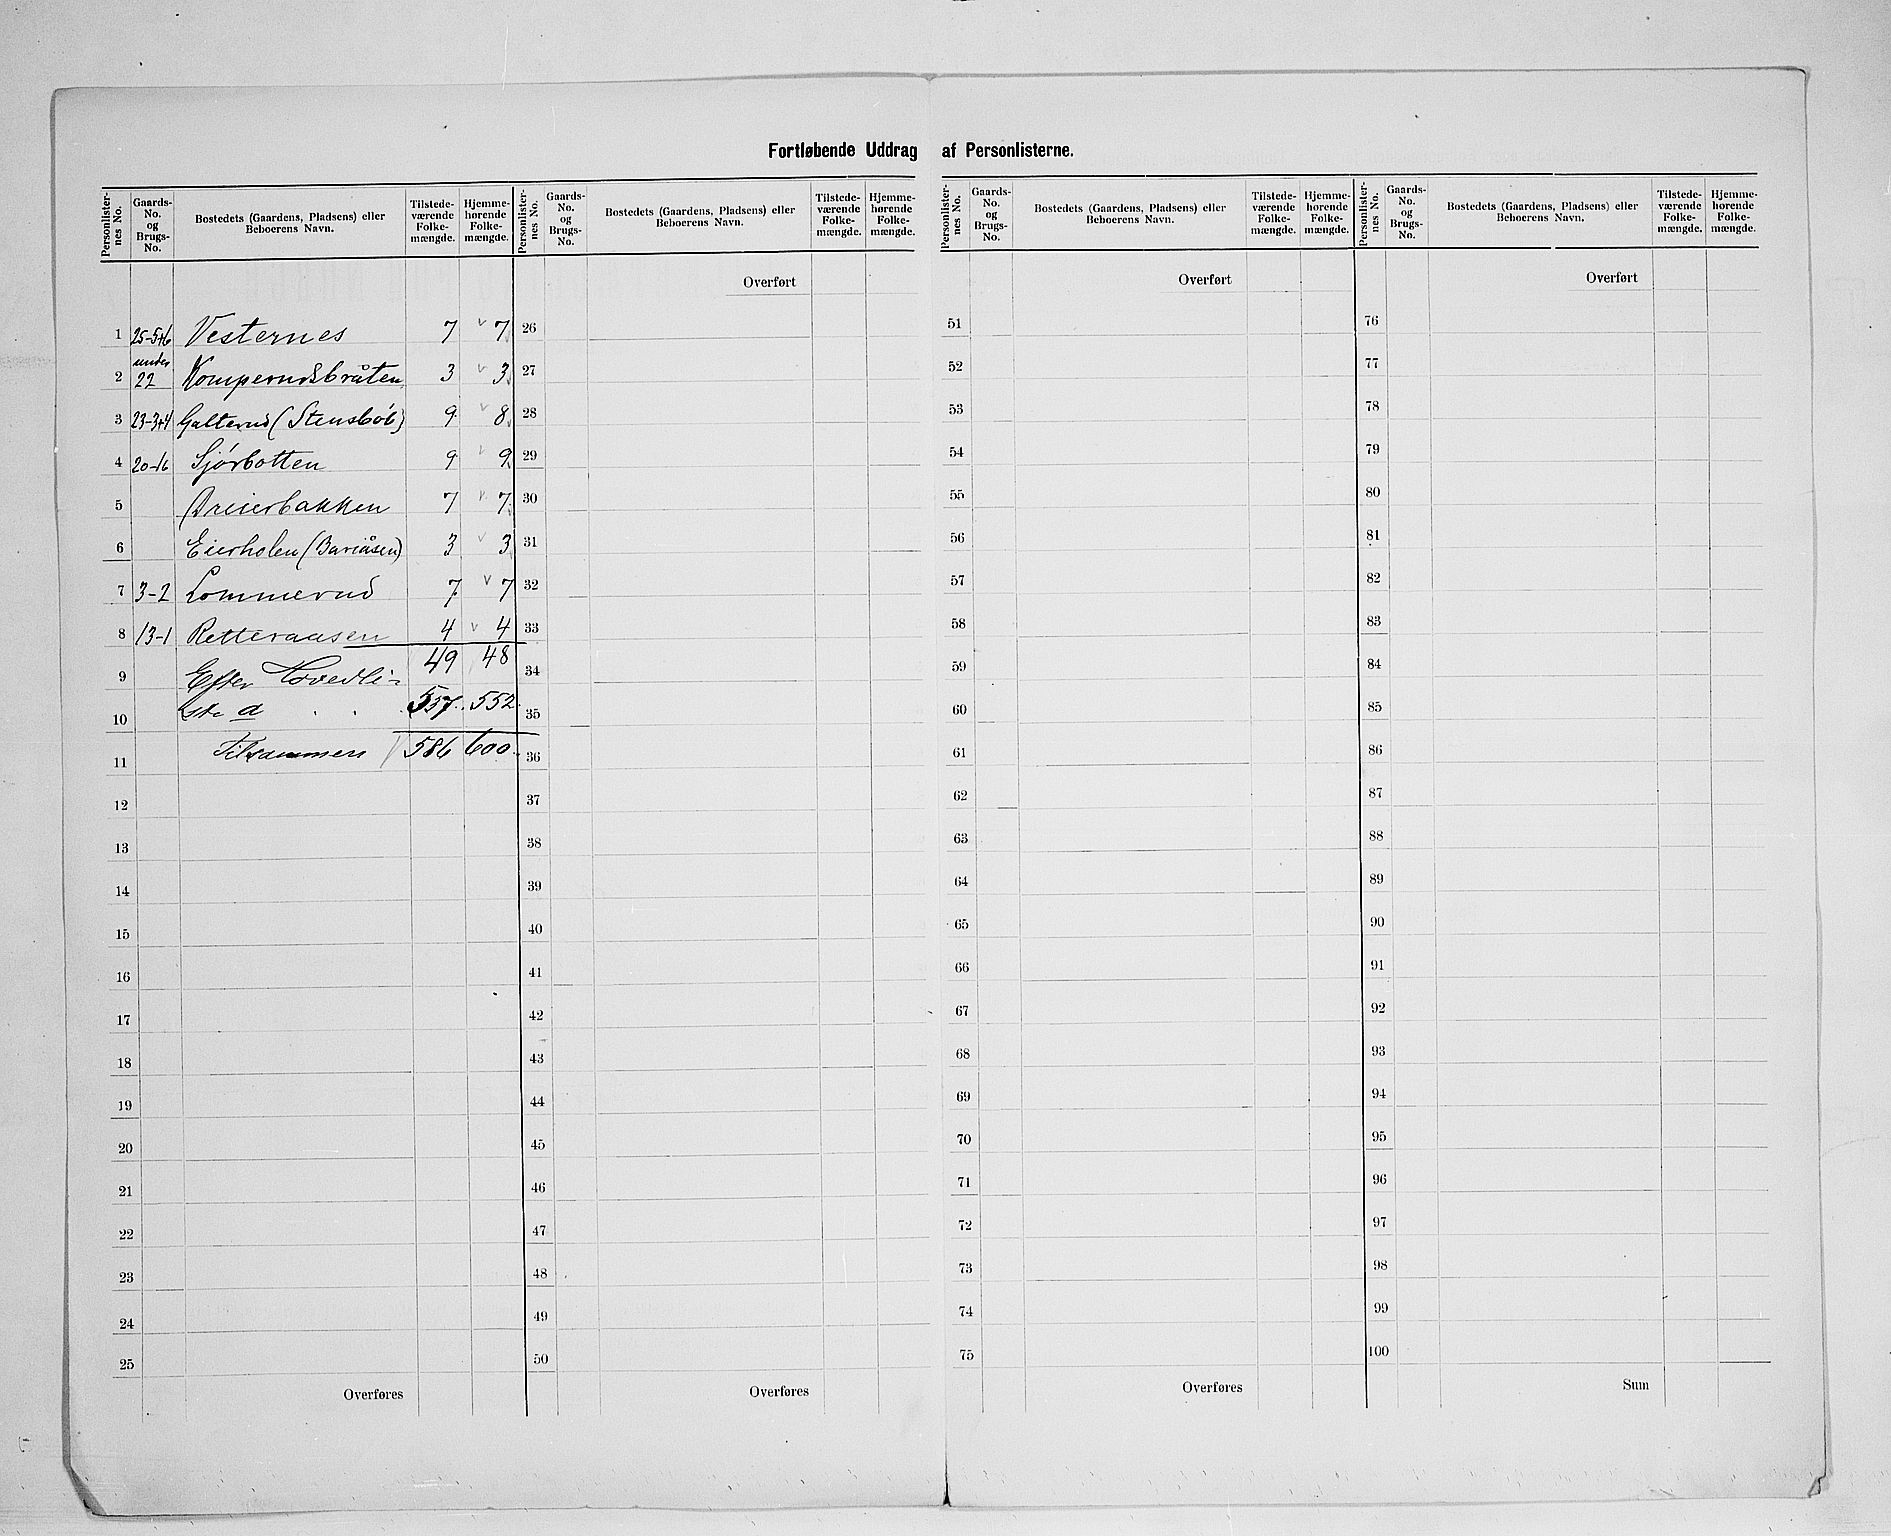 Fortløbende Uddrag af Personlisterne.
Personlisternes No. | Gaards-No. og Brugs-No. | Bostedets (Gaardens, Pladsens) eller Beboerens Navn. | Tilstedeværende Folkemængde. | Hjemmehørende Folkemængde.
Personlisternes No. | Gaards-No. og Brugs-No. | Bostedets (Gaardens, Pladsens) eller Beboerens Navn. | Tilstedeværende Folkemængde. | Hjemmehørende Folkemængde.
Personlisternes No. | Gaards-No. og Brugs-No. | Bostedets (Gaardens, Pladsens) eller Beboerens Navn. | Tilstedeværende Folkemængde. | Hjemmehørende Folkemængde.
Personlisternes No. | Gaards-No. og Brugs-No. | Bostedets (Gaardens, Pladsens) eller Beboerens Navn. | Tilstedeværende Folkemængde. | Hjemmehørende Folkemængde.
Overført Overført Overført
1 25-5+6 Vesternes 7 v 7 26 51 76
2 under 22 Komperudsbråten 3 v 3 27 52 77
3 23-3+4 Galterud (Stensbøl) 9 v 8 28 53 78
4 20-16 Sjørbotten 9 v 9 29 54 79
5 Dreierbakken 7 v 7 30 55 80
6 Eierholen (Bariåsen) 3 v 3 31 56 81
7 3-2 Lommerud 7 v 7 32 57 82
8 13-1 Retteraasen 4 v 4 33 58 83
9 Efter Hovedli= 49 48 34 59 84
10 ste d . . 537. 552 35 60 85
11 Tilsammen 586 600 36 61 86
12 37 62 87
13 38 63 88
14 39 64 89
15 40 65 90
16 41 66 91
17 42 67 92
18 43 68 93
19 44 69 94
20 45 70 95
21 46 71 96
22 47 72 97
23 48 73 98
24 49 74 99
25 50 75 100
Overføres Overføres Overføres Sum